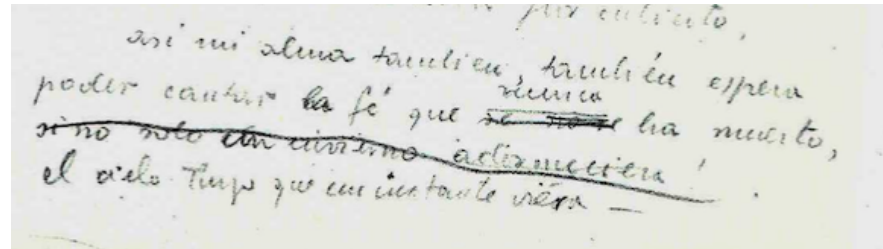 por cubierto,
así mi alma tambien, también espera
poder cantar la fé que nunca ha muerto,
sino solo un invierno adormeciera!
el cielo que un instante viéra —